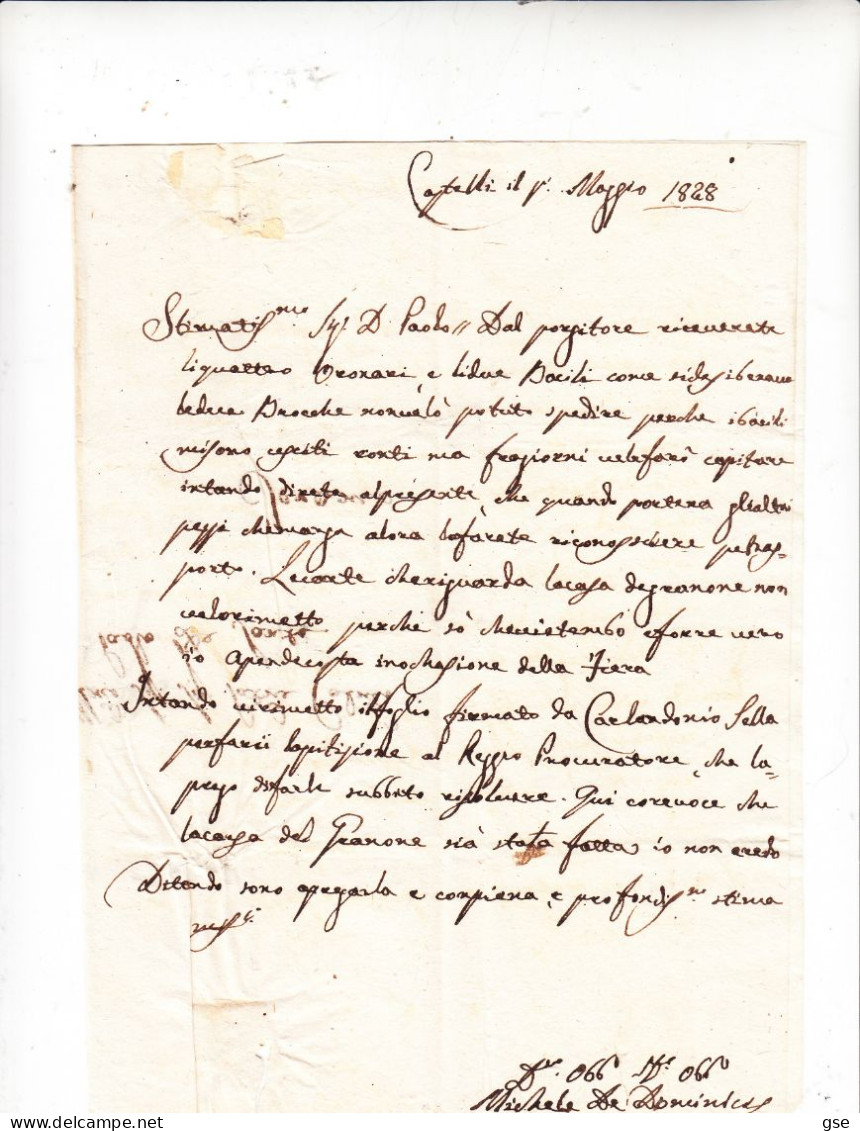 Castelli il p.º Maggio 1828
Stimatis.mo Sig. D Paolo // Dal porgitore riceverete
li quattro Oronari, e li due Bacili come si desiderava
le due Brocche non velò potuto spedire perche i bacili
mi sono usciti ma fra giorni ve le farò capitare
intando direte al presente, che quando portera gli altri
pezzi alora lo farete riconosschere pe tras-
porto. Le carte che riguarda la casa de granone non
ve lo rimetto perche sò che ci è tembo e forre vero
io a pendecosta in ochasione della Fiera
Intando vi rimetto il foglio firmato da Carlandonio Sella
per farci la pitizione al Reggio Procuratore, che la
prego di farle subbito risolvere. Qui core voce che
la causa del Granone sià stata fatta, io non credo
Ditando sono a pregarla e con piena, e profondis.mo stima
D.mo Obb.o Obb.o
Michele De Dominicis
gse